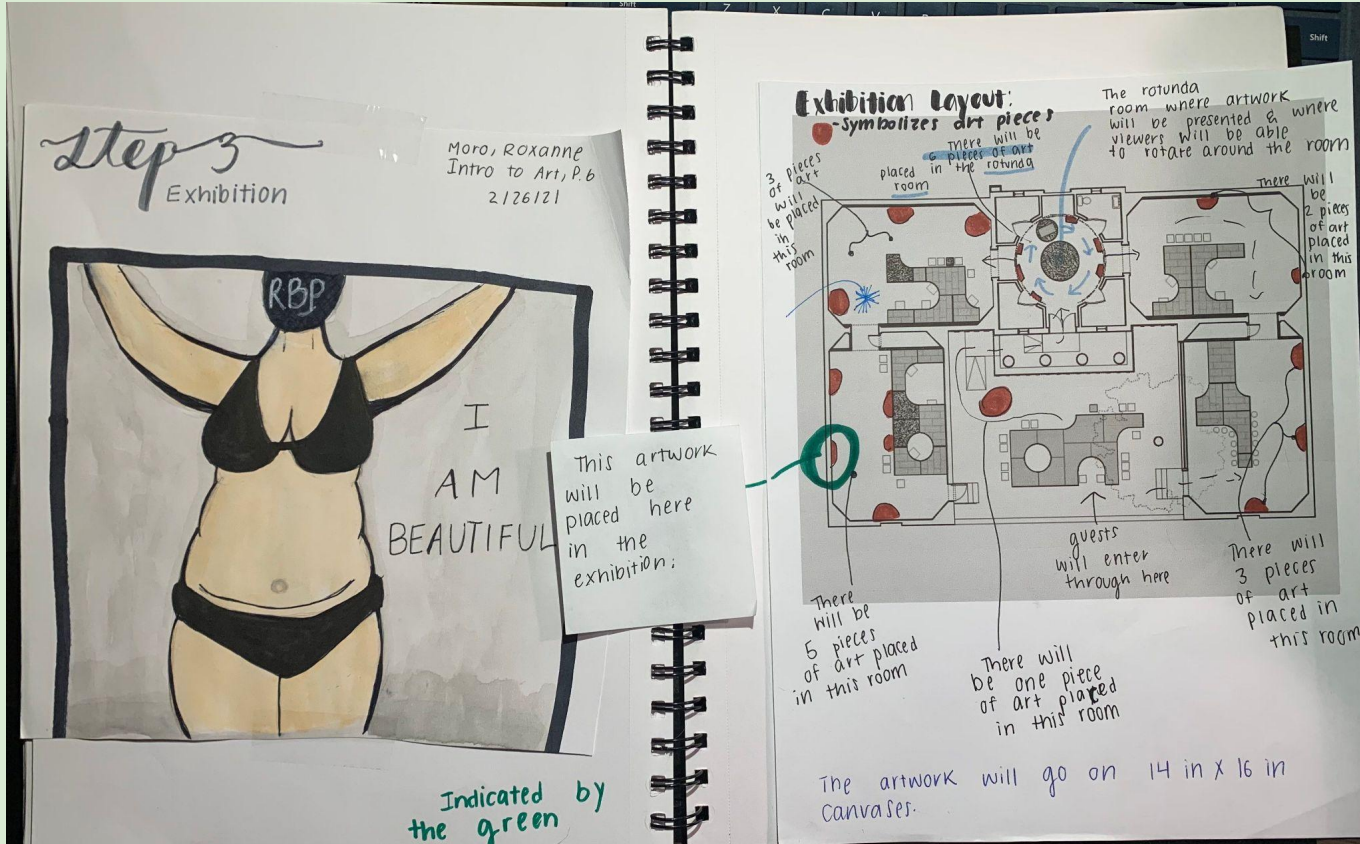 Step 3
Exhibition
Moro, Roxanne
Intro to Art, P.6
2/26/21
RBP
I
AM
BEAUTIFUL
This artwork
will be
placed here
in the
exhibition;
Indicated by
the green
Exhibition Layout:
-Symbolizes art pieces
The rotunda
room where artwork
will be presented & where
viewers will be able
to rotate around the room
3 pieces
of art
will
be placed
in
this
room
There will be
6 pieces of art
placed in the rotunda
room
There will
be
2 pieces
of art
placed
in this
room
guests
will enter
through here
There
will be
5 pieces
of art placed
in this room
There will
be one piece
of art placed
in this room
There will
3 pieces
of art
placed in
this room
The artwork will go on 14 in X 16 in
canvases.
Shift
Z X C V
Shift